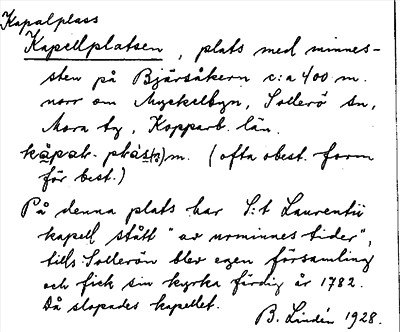 Kapalplass
Kapellplatsen, plats med minnes-
sten på Bjärsåkern c:a 400 m.
norr om Myckelbyn, Sollerö sn,
Mora tg, Kopparb. län.
kåpal-plas(s) m. (ofta obest. form
för best.)
På denna plats har S:t Laurentii
kapell stått "av urminnes tider",
tills Sollerön blev egen församling
och fick sin kyrka färdig år 1782.
Då slopades kapellet.
B. Lindén 1928.